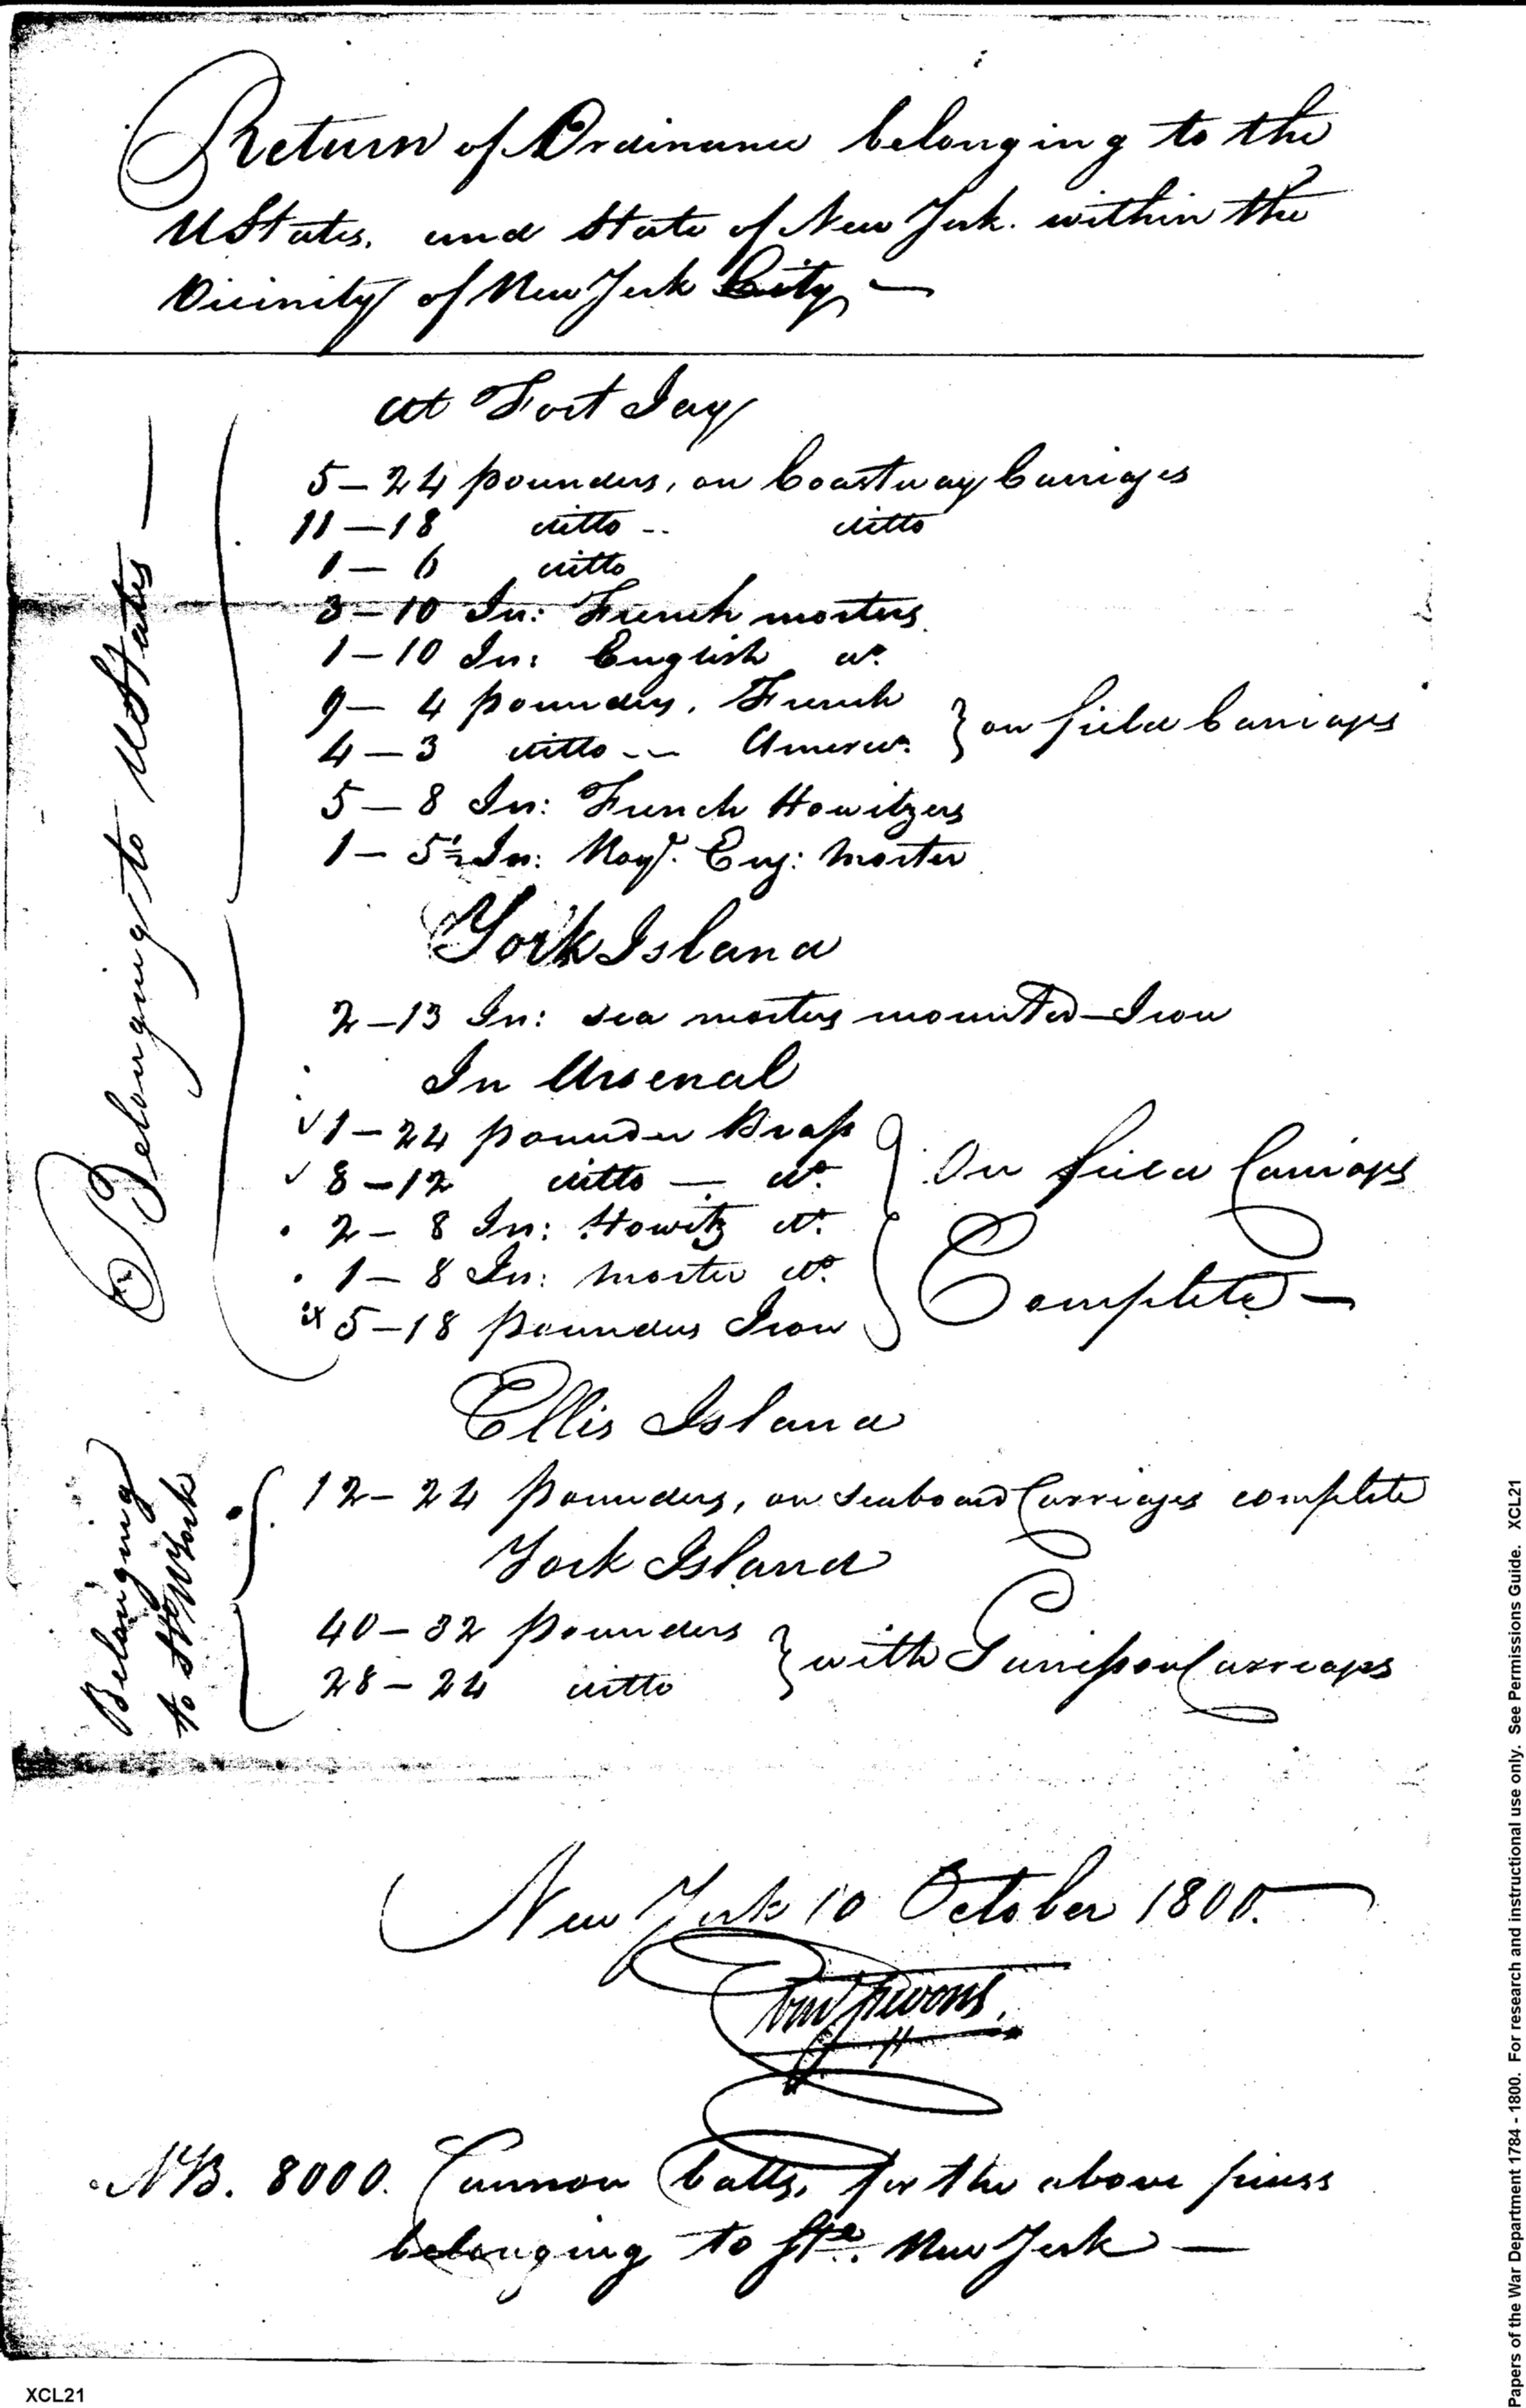 Return of Ordinance belonging to the
UStates, and State of New York. within the
Vicinity of New York City —
at Fort Jay
Belonging to UStates —
5 – 24 pounders, on Coastway Carriages
11 – 18 ditto -- ditto
1 – 6 ditto
3 – 10 In: French morters
1 – 10 In: English do.
9 – 4 pounders, French
4 – 3 ditto -- Americn. } on field Carriages
5 – 8 In: French Howitzers
1 – 5½ In: Eng: morter
York Island
2 – 13 In: sea morters mounted – Iron
In Arsenal
✓ 1 – 24 pounder Brass
✓ 8 – 12 ditto — do. } On field Carriages
. 2 – 8 In: Howitz do.
. 1 – 8 In: morter do. Complete —
x 5 – 18 pounders Iron
Ellis Island
Belonging
to St. N York
12 – 24 pounders, on seaboard Carriages complete
York Island
40 – 32 pounders
28 – 24 ditto } with Garrison Carriages
New York 10 October 1800.
NB. 8000. Cannon balls, for the above pieces
belonging to Ste. New York —
XCL21
Papers of the War Department 1784 - 1800. For research and instructional use only. See Permissions Guide. XCL21